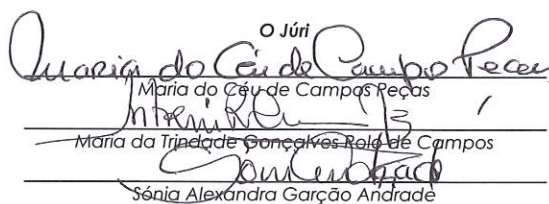 O Júri
Maria do Céu de Campo Peças
Maria do Céu de Campos Peças
Maria da Trindade Gonçalves Rolo de Campos
Sónia Alexandra Garção Andrade